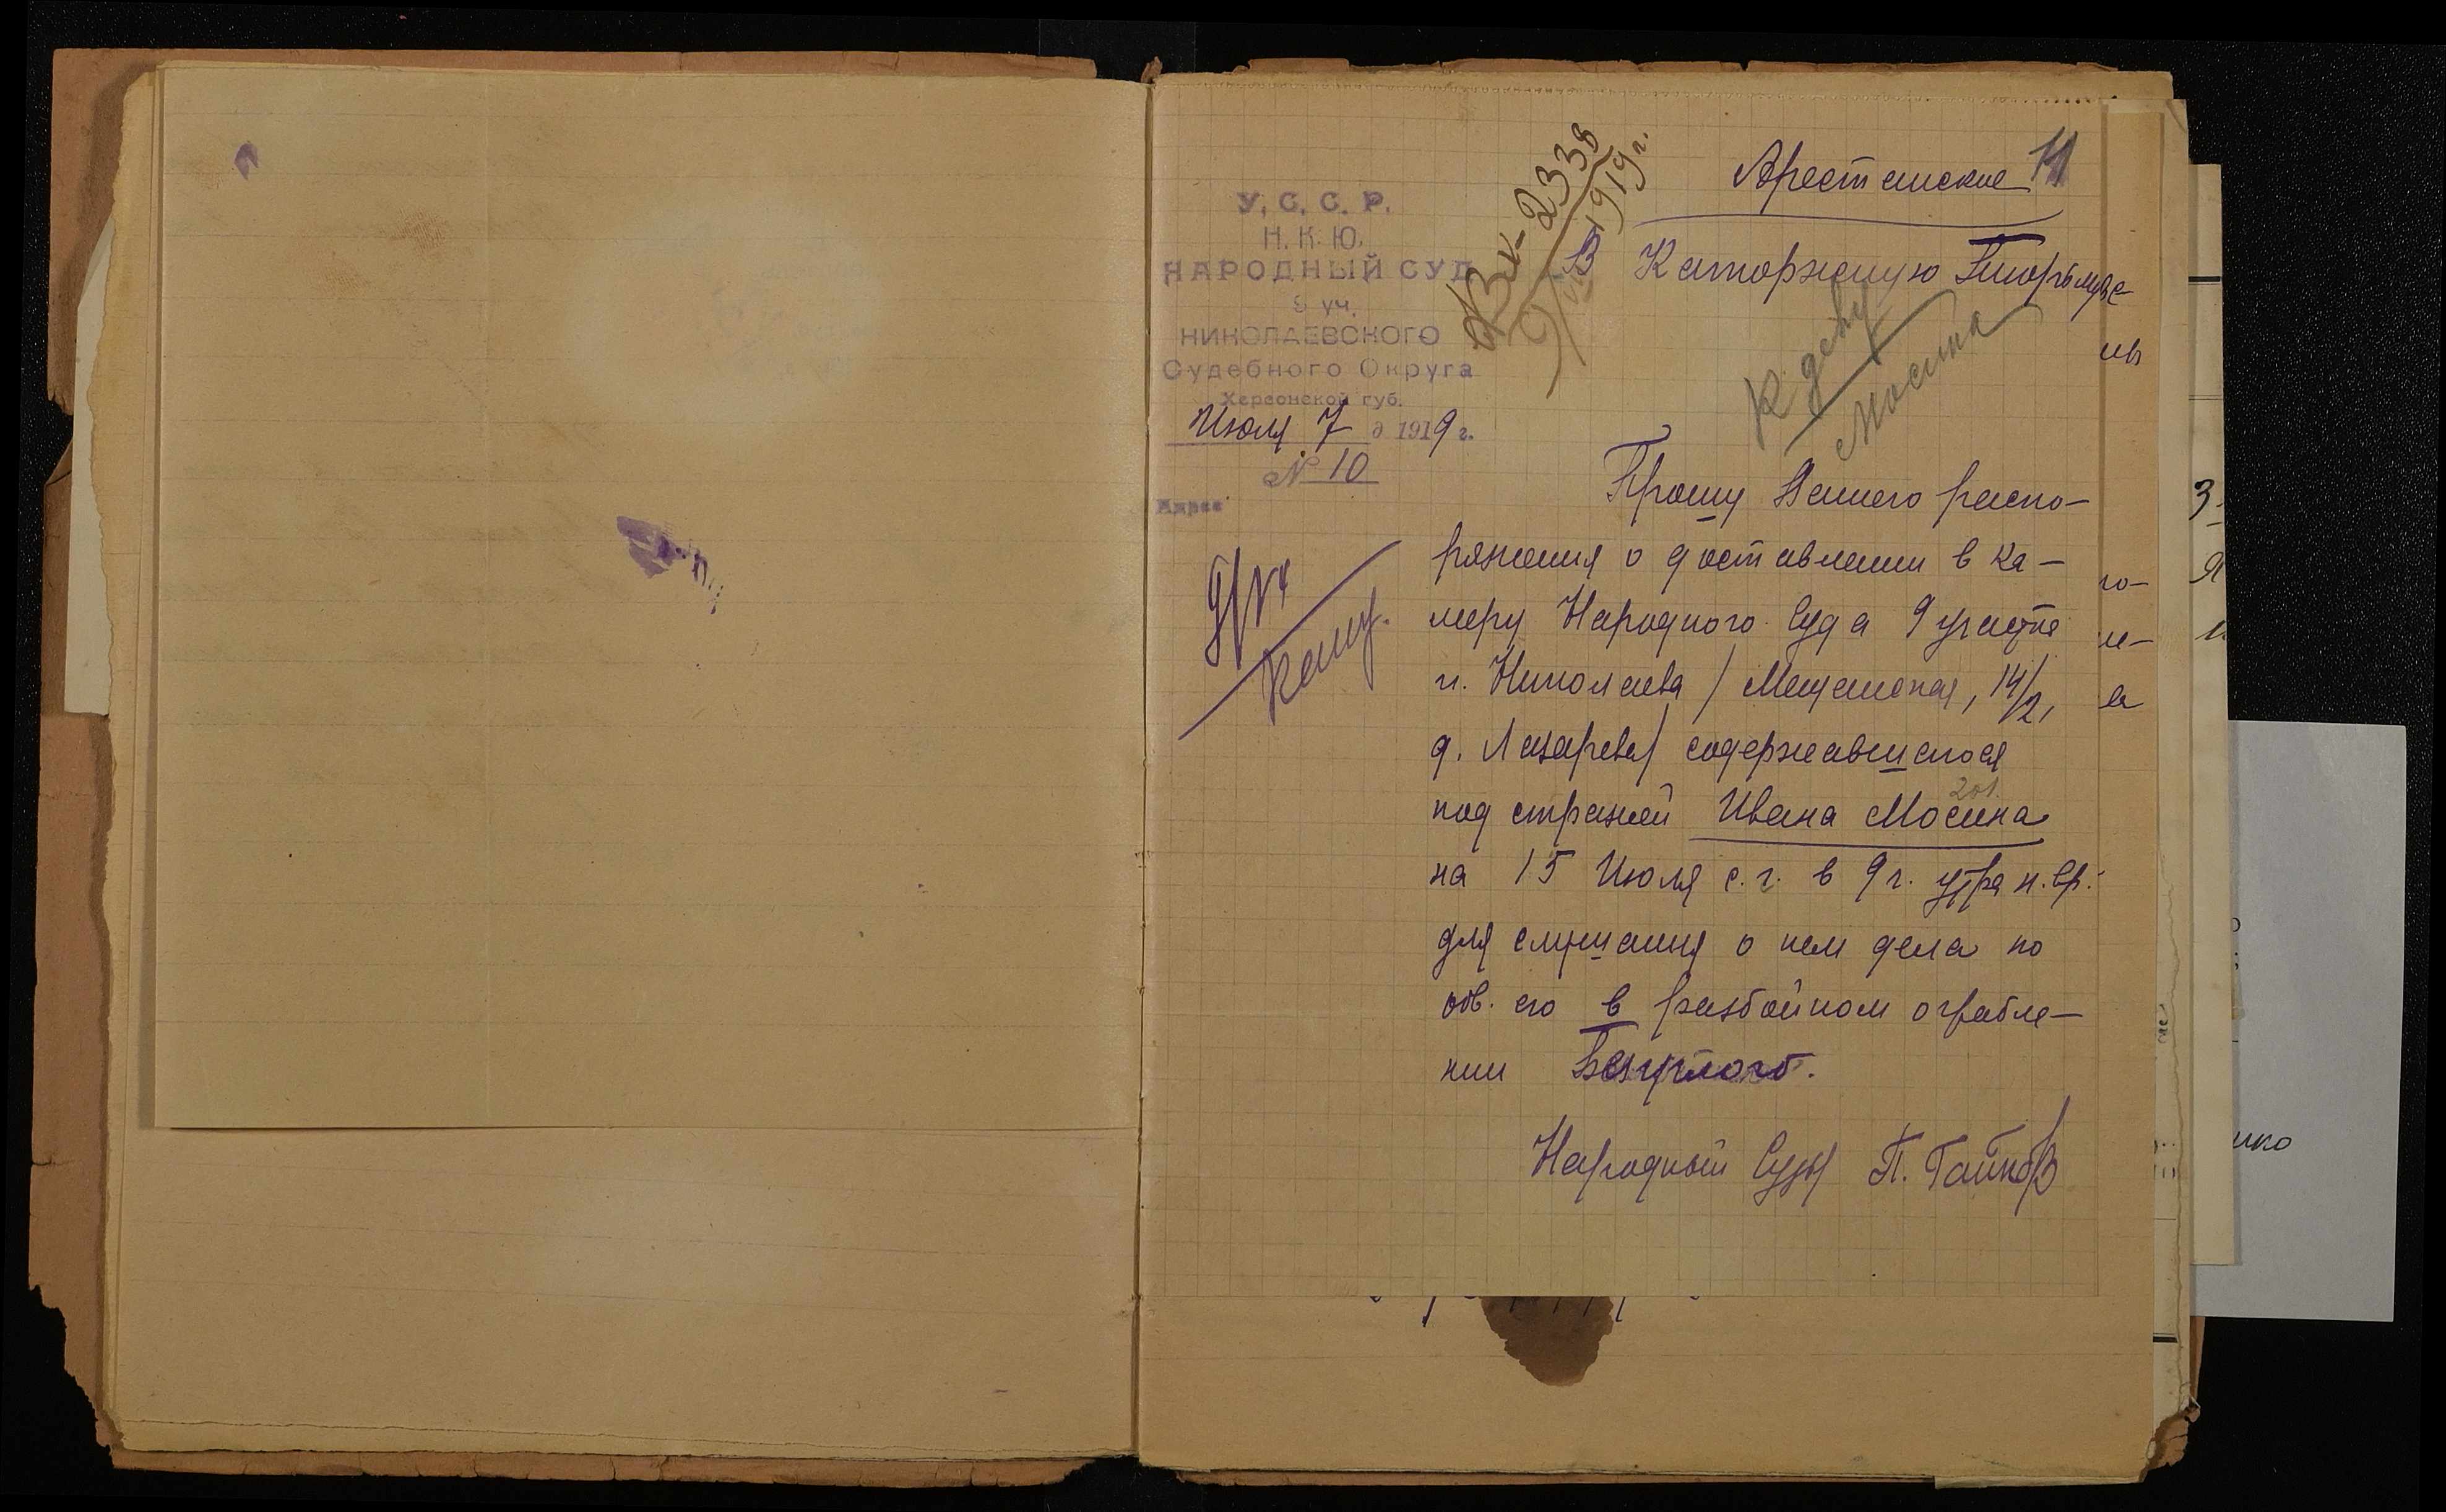 Арестанское 11
Вх-2338
9/VII 1919 г.
У. С. С. Р.
Н. К. Ю.
НАРОДНЫЙ СУД
9 уч.
НИКОЛАЕВСКОГО
Судебного Округа
Херсонской губ.
Июля 7 д 1919 г.
№ 10
Адрес
В Каторжную Тюрьму
К делу
Мосина
9/VII
Прошу Вашего распо-
ряжения о доставлении в ка-
меру Народного Суда 9 участка
г. Николаева / Мещанская, 14/2,
д. Лазарева / содержавшегося
под стражей Ивана Мосина
201.
на 15 Июля с.г. в 9 ч. утра н. вр.
для слушания о нем дела по
обв. его в разбойном ограбле-
нии Беззуглого.
Народный Судья П. Гайкор